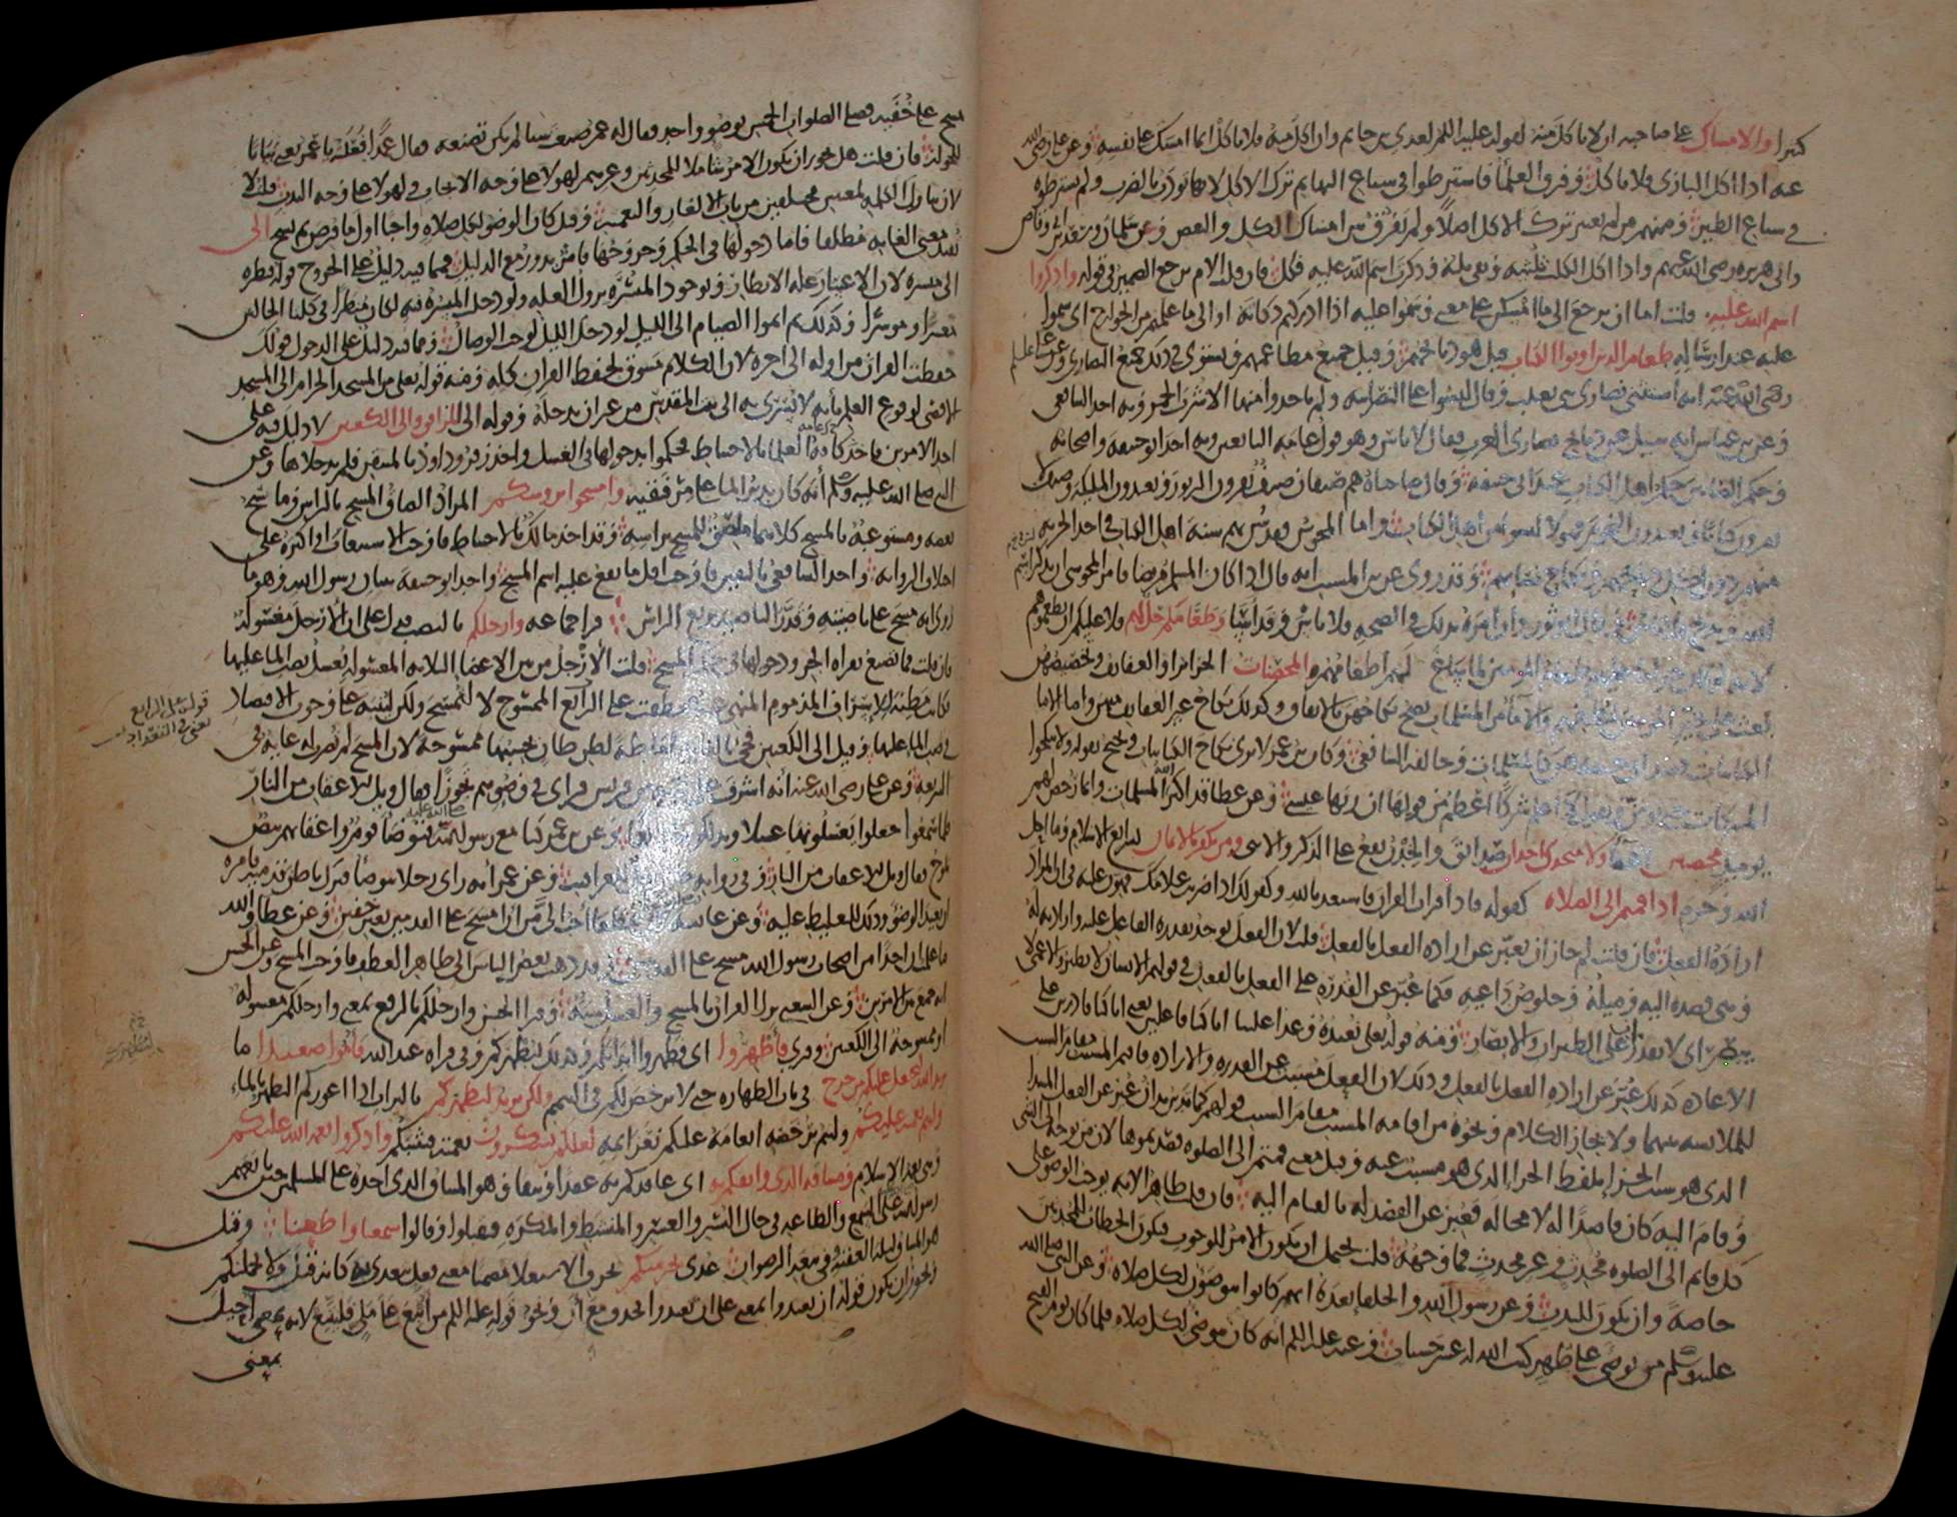 كثيرا والامساك على صاحبه ان لا ياكل منه لقوله عليه السلم لعدي بن حاتم وان اكل منه فلا تاكل انما امسك على نفسه وعن علي رضي الله
عنه اذا اكل البازي فلا تاكل وفرق العلماء فاشترطوا في سباع البهايم ترك الاكل لانها تودب بالضرب ولم يشترطوه
في سباع الطير ومنهم من لم يعتبر ترك الاكل اصلا ولم يفرق بين امساك الكل والبعض وعن سلمان وسعد بن ابي وقاص
وابي هريره رضي الله عنهم واذا اكل الكلب ثلثيه وبقي ثلثه وذكرت اسم الله عليه فكل فان قلت الام يرجع الضمير في قوله واذكروا
اسم الله عليه قلت اما ان يرجع الى ما امسكن على معنى وسموا عليه اذا ادركتم ذكاته او الى ما علمتم من الجوارح اي سموا
عليه عند ارساله طعام الذين اوتوا الكتاب قيل هو ذبايحهم وقيل جميع مطاعمهم ويستوي في ذلك جميع النصارى وعن علي
رضي الله عنه انه استثنى نصارى بني تغلب وقال ليسوا على النصرانيه ولم ياخذوا منها الا شرب الخمر وبه اخذ الشافعي
وعن بن عباس انه سيل عن ذبايح نصارى العرب فقال لا باس وهو قول عامه التابعين وبه اخذ ابو حنيفه واصحابه
وحكم الصابين حكم اهل الكتاب عند ابي حنيفه وقال صاحباه هم صنفان صنف يقرون الزبور ويعبدون المليكه وصنف
لا يقرون كتابا ويعبدون النجوم فهولا ليسوا من اهل الكتاب واما المجوس فقد سن بهم سنة اهل الكتاب في اخذ الجزيه
منهم دون اكل ذبايحهم ونكاح نسايهم وقد روي عن بن المسيب انه قال اذا كان المسلم مريضا فامر المجوسي ان يذكر اسم
الله ويذبح فلا باس وقال ابو ثور وان امره بذلك في الصحه فلا باس وقد اسا وطعامكم حل لهم فلا عليكم ان تطعموهم
لهم اطعامهم والمحصنات الحراير او العفايف وتخصيصهن
بعث على والاما من المسلمات يصح نكاحهن بالاتفاق وكذلك نكاح غير العفايف منهن واما الاما
الكتابيات كالمسلمات وخالفه الشافعي وكان بن عمر لا يرى نكاح الكتابيات ويحتج بقوله ولا تنكحوا
المشركات ويقول لا اعلم شركا اعظم من قولها ان ربها عيسى وعن عطا قد اكثر الله المسلمات وانما رخص لهم
يوميذ محصنين اعفا ولا متخذي اخدان صدايق والخدن يقع على الذكر والانثى ومن يكفر بالايمان بشرايع الاسلام وما احل
الله وحرم اذا قمتم الى الصلاه كقوله فاذا قرات القران فاستعذ بالله وكقولك اذا ضربت غلامك فهون عليه في ان المراد
ارادة الفعل فان قلت لم جاز ان يعبر عن اراده الفعل بالفعل قلت لان الفعل يوجد بقدره الفاعل عليه وارادته له
وهي قصده اليه وميله وخلوص داعيه فكما عبر عن القدره على الفعل بالفعل في قولهم الانسان لا يطير والاعمى لا
يبصر اي لا يقدران على الطيران والابصار ومنه قوله تعالى نعيده وعدا علينا انا كنا فاعلين يعني انا كنا قادرين على
الاعاده كذلك عبر عن اراده الفعل بالفعل وذلك لان الفعل مسبب عن القدره والاراده فاقيم المسبب مقام السبب
للملابسه بينهما ولايجاز الكلام ونحوه من اقامه المسبب مقام السبب قولهم كما تدين تدان عبر عن الفعل المبتدا
الذي هو سبب الجزا بلفظ الجزا الذي هو مسبب عنه وقيل معنى قمتم الى الصلوه قصدتموها لان من توجه الى الشي
وقام اليه كان قاصدا له لا محاله فعبر عن القصد له بالقيام اليه فان قلت ظاهر الايه يوجب الوضو على
كل قايم الى الصلوه محدث وغير محدث فما وجهه قلت يحتمل ان يكون الامر للوجوب فيكون الخطاب للمحدثين
خاصة وان يكون للندب وعن رسول الله والخلفا بعده انهم كانوا يتوضون لكل صلاه وعن النبي صلى الله
عليه وسلم من توضى على طهر كتب الله له عشر حسنات وعنه عليه السلم انه كان يتوضى لكل صلاه فلما كان يوم الفتح
مسح على خفيه وصلى الصلوات الخمس بوضو واحد فقال له عمر صنعت شيا لم تكن تصنعه فقال عمدا فعلته يا عمر يعني بيانا
للجواز فان قلت هل يجوز ان يكون الامر شاملا للمحدثين وغيرهم لهولا على وجه الايجاب ولهولا على وجه الندب قلت لا
لان تناول الكلمه لمعنيين مختلفين من باب الالغاز والتعميه وقيل كان الوضو لكل صلاه واجبا اول ما فرض ثم نسخ الى
تفيد معنى الغايه مطلقا فاما دخولها في الحكم وخروجها فامر يدور مع الدليل فمما فيه دليل على الخروج قوله فنظره
الى ميسره لان الاعسار علة الانظار وبوجود الميسره تزول العله ولو دخلت الميسره فيه لكان منظرا في كلتا الحالتين
معسرا وموسرا وكذلك ثم اتموا الصيام الى الليل لو دخل الليل لوجب الوصال ومما فيه دليل على الدخول قولك
حفظت القران من اوله الى اخره لان الكلام مسوق لحفظ القران كله ومنه قوله تعالى من المسجد الحرام الى المسجد
الاقصى لوقوع العلم بانه لا يسرى به الى بيت المقدس من غير ان يدخله وقوله الى المرافق والى الكعبين لا دليل فيه على
احد الامرين فاخذ كافة العلما بالاحتياط فحكموا بدخولها في الغسل واخذ زفر وداود بالمتيقن فلم يدخلاها وعن
النبي صلى الله عليه وسلم انه كان يدير الما على مرفقيه وامسحوا بروسكم المراد الصاق المسح بالراس وماسح
بعضه ومستوعبه بالمسح كلاهما ملصق للمسح براسه فقد اخذ مالك بالاحتياط فاوجب الاستيعاب او اكثره على
اختلاف الروايه واخذ الشافعي باليقين فاوجب اقل ما يقع عليه اسم المسح واخذ ابو حنيفه ببيان رسول الله وهو ما
روي انه مسح على ناصيته وقدر الناصيه بربع الراس قرا جماعه وارجلكم بالنصب فدل على ان الارجل مغسولة
فان قلت فما تصنع بقراه الجر ودخولها في حكم المسح قلت الارجل من بين الاعضا الثلاثه المغسوله تغسل بصب الما عليها
فكانت مظنة للاسراف المذموم المنهي عنه فعطفت على الرابع الممسوح لا لتمسح ولكن لينبه على وجوب الاقتصاد
في صب الما عليها وقيل الى الكعبين فجي بالغايه اماطة لظن ظان يحسبها ممسوحة لان المسح لم تضرب له غاية في
الشريعه وعن علي رضي الله عنه انه اشرف على فتية من قريش فراى في وضوهم تجوزا فقال ويل للاعقاب من النار
فلما سمعوا جعلوا يغسلونها غسلا ويدلكونها دلكا وعن بن عمر كنا مع رسول الله فتوضا قوم واعقابهم بيض
تلوح فقال ويل للاعقاب من النار وفي روايه للعراقيب وعن عمر انه راى رجلا يتوضا فترك باطن قدميه فامره
ان يعيد الوضو وذلك للتغليظ عليه وعن عايشه لان تقطعا احب الي من ان امسح على القدمين بغير خفين وعن عطا والله
ما علمت ان احدا من اصحاب رسول الله مسح على القدمين وقد ذهب بعض الناس الى ظاهر العطف فاوجب المسح وعن الحسن
انه جمع بين الامرين وعن الشعبي نزل القران بالمسح والغسل سنة وقرا الحسن وارجلكم بالرفع بمعنى وارجلكم مغسوله
او ممسوحة الى الكعبين وقري فاطهروا اي فطهروا ابدانكم وكذلك ليطهركم وفي قراه عبد الله فاموا صعيدا ما
يريد الله ليجعل عليكم من حرج في باب الطهاره حتى لا يرخص لكم في التيمم ولكن يريد ليطهركم بالتراب اذا اعوزكم التطهر بالماء
وليتم نعمته عليكم وليتم برخصه انعامه عليكم بعزايمه لعلكم تشكرون نعمته فيثيبكم واذكروا نعمة الله عليكم
وهي نعمة الاسلام وميثاقه الذي واثقكم به اي عاقدكم به عقدا وثيقا وهو الميثاق الذي اخذه على المسلمين حين بايعهم
رسول الله على السمع والطاعه في حال اليسر والعسر والمنشط والمكره فقبلوا وقالوا سمعنا واطعنا وقيل
هو الميثاق ليلة العقبة وفي بيعة الرضوان عدي يجرمنكم بحرف الاستعلا مضمنا معنى فعل يتعدى به كانه قيل ولا يحملنكم
ويجوز ان يكون قوله ان تعتدوا بمعنى على ان تعتدوا فحذف مع ان ونحوه قوله عليه السلم من اتبع على ملي فليتبع لانه بمعنى احيل
بمعنى